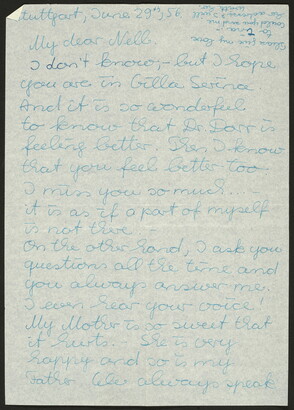 Stuttgart, June 29th, 56
My dear Nell.
I don't know, but I hope
you are in Villa Serina
And it is so wonderful
to know that Dr Dorr is
feeling better. Then I know
that you feel better too
I miss you so much ....
it is as if a part of myself
is not there
On the other hand, I ask you
questions all the time and
you always answer me.
I even hear your voice!
My Mother is so sweet that
it hurts. She is very
happy and so is my
Father. We always speak